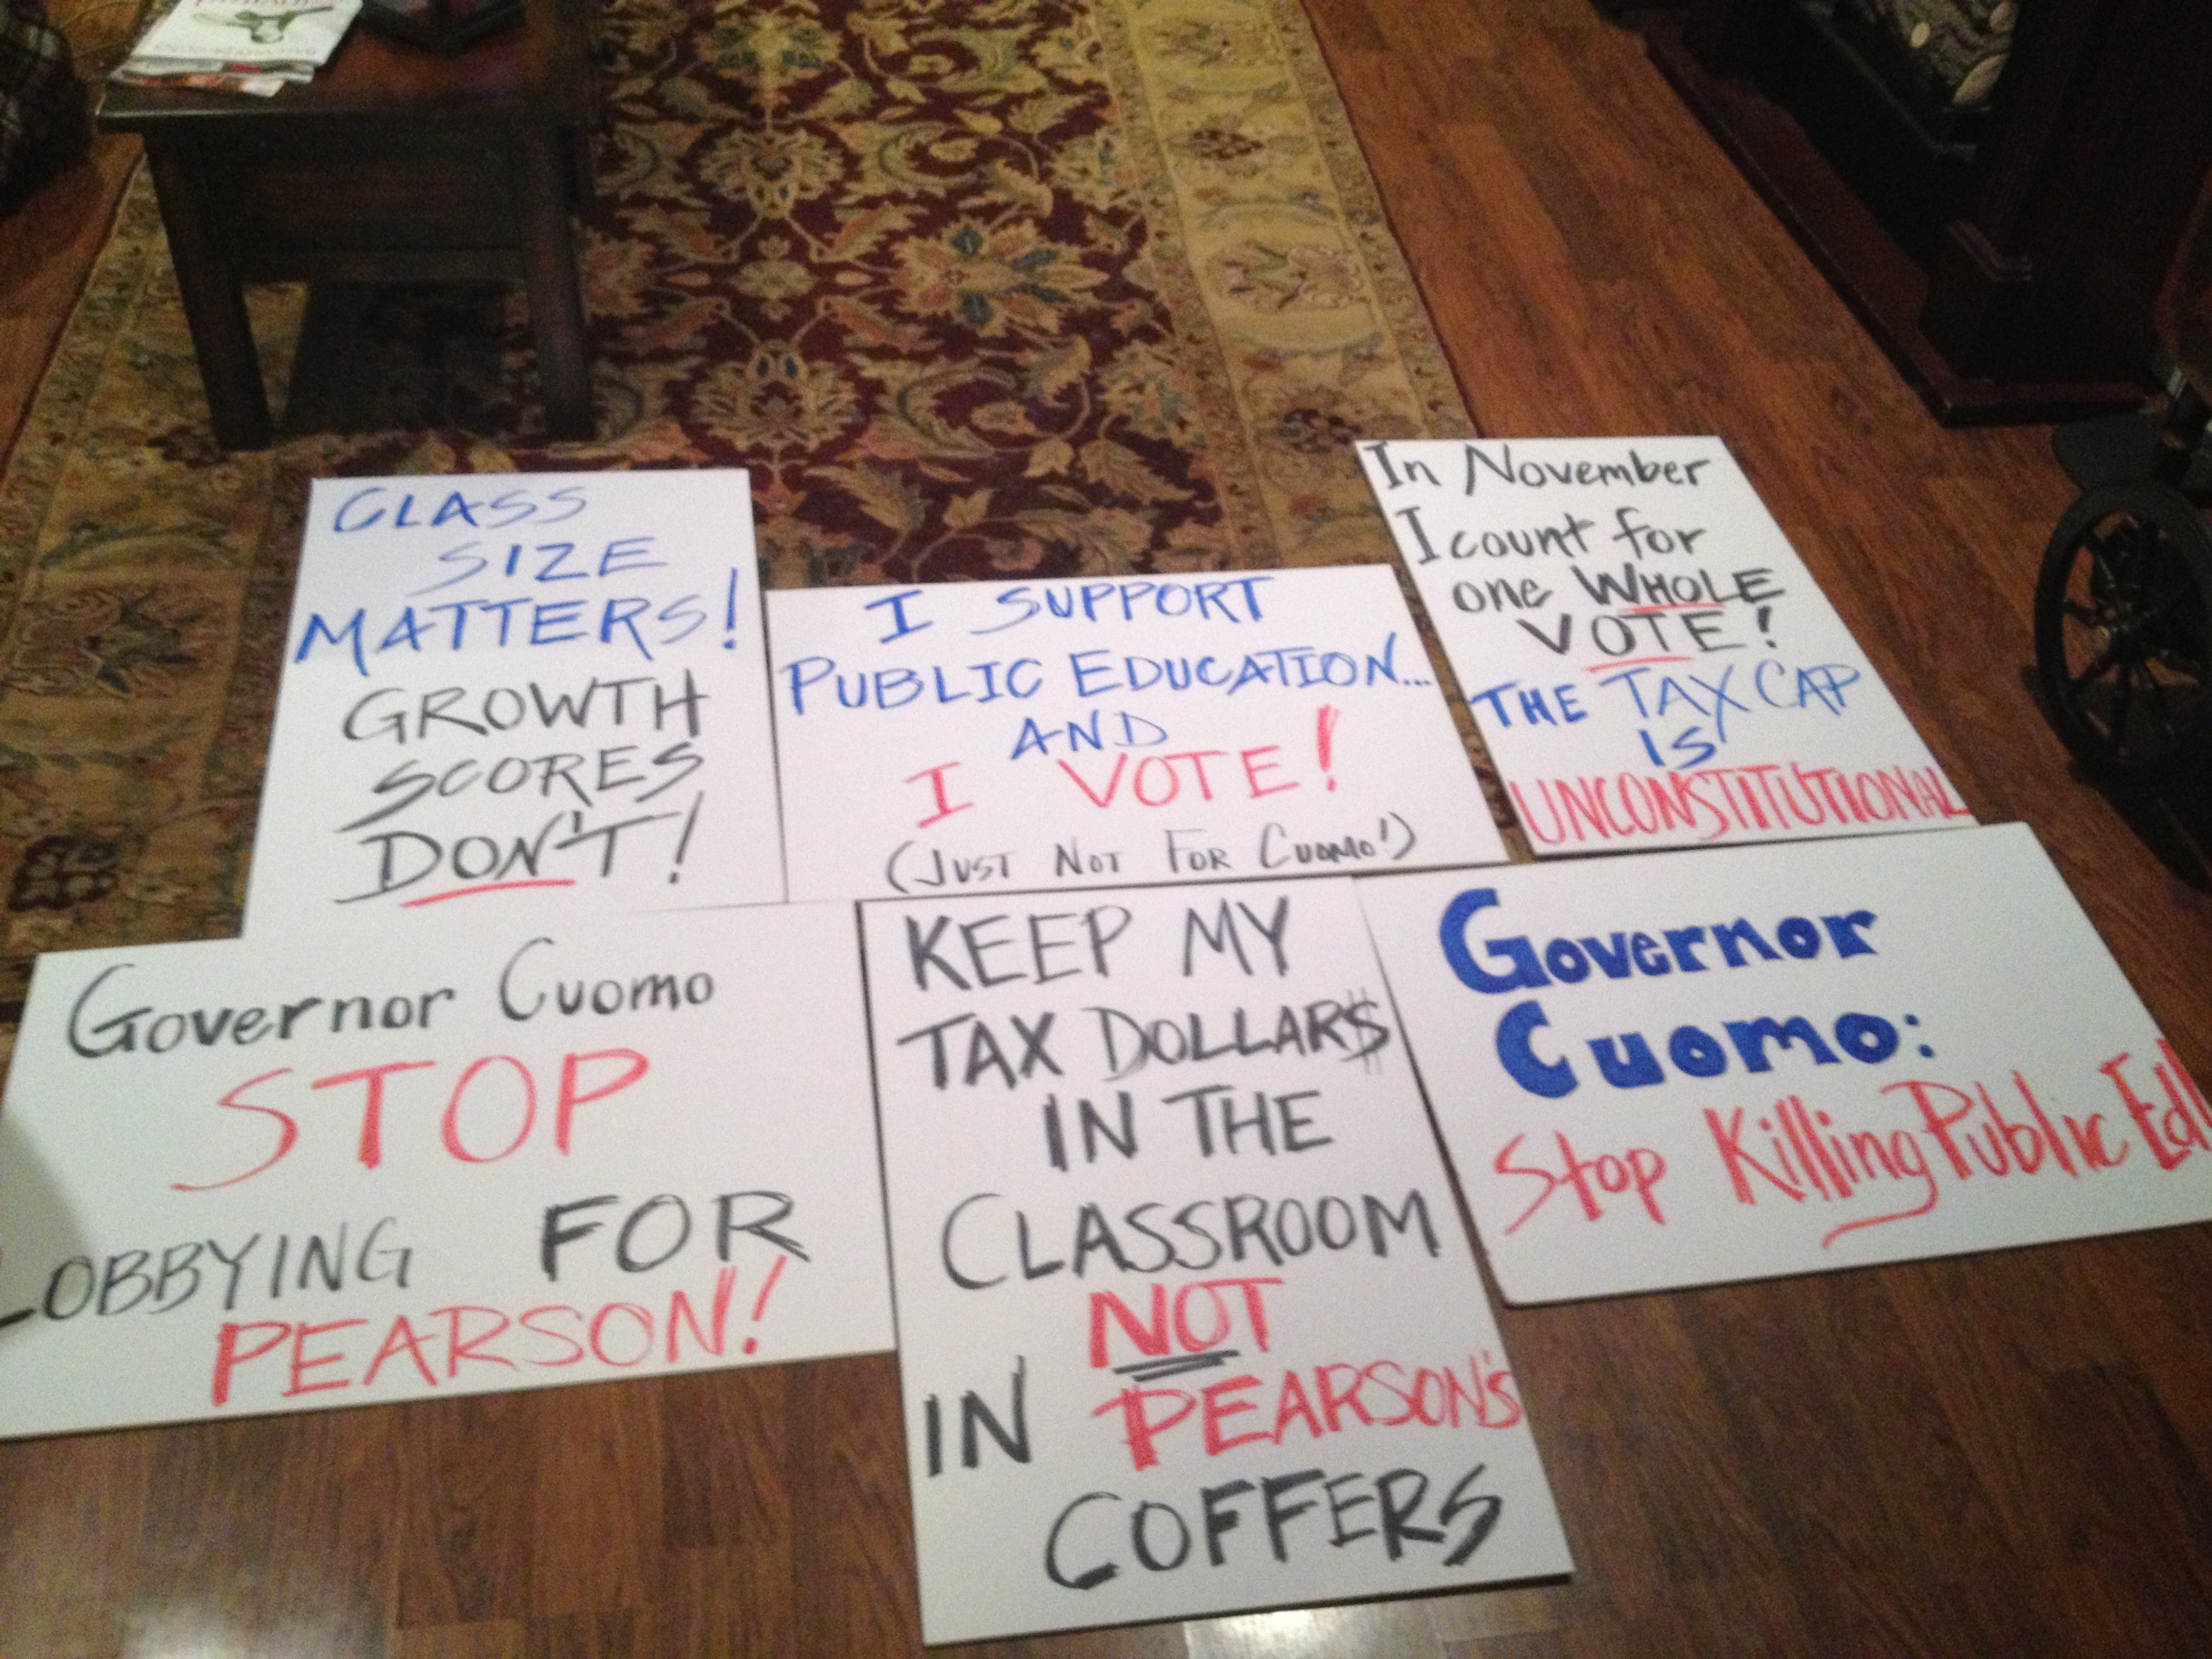 CLASS
SIZE
MATTERS!
GROWTH
SCORES
DON'T!
I SUPPORT
PUBLIC EDUCATION...
AND
I VOTE!
(JUST NOT FOR CUOMO!)
In November
I count for
one WHOLE
VOTE!
THE TAX CAP
IS
UNCONSTITUTIONAL
Governor Cuomo
STOP
LOBBYING FOR
PEARSON!
KEEP MY
TAX DOLLAR$
IN THE
CLASSROOM
NOT
IN PEARSON'S
COFFERS
Governor
Cuomo:
Stop Killing Public Ed!